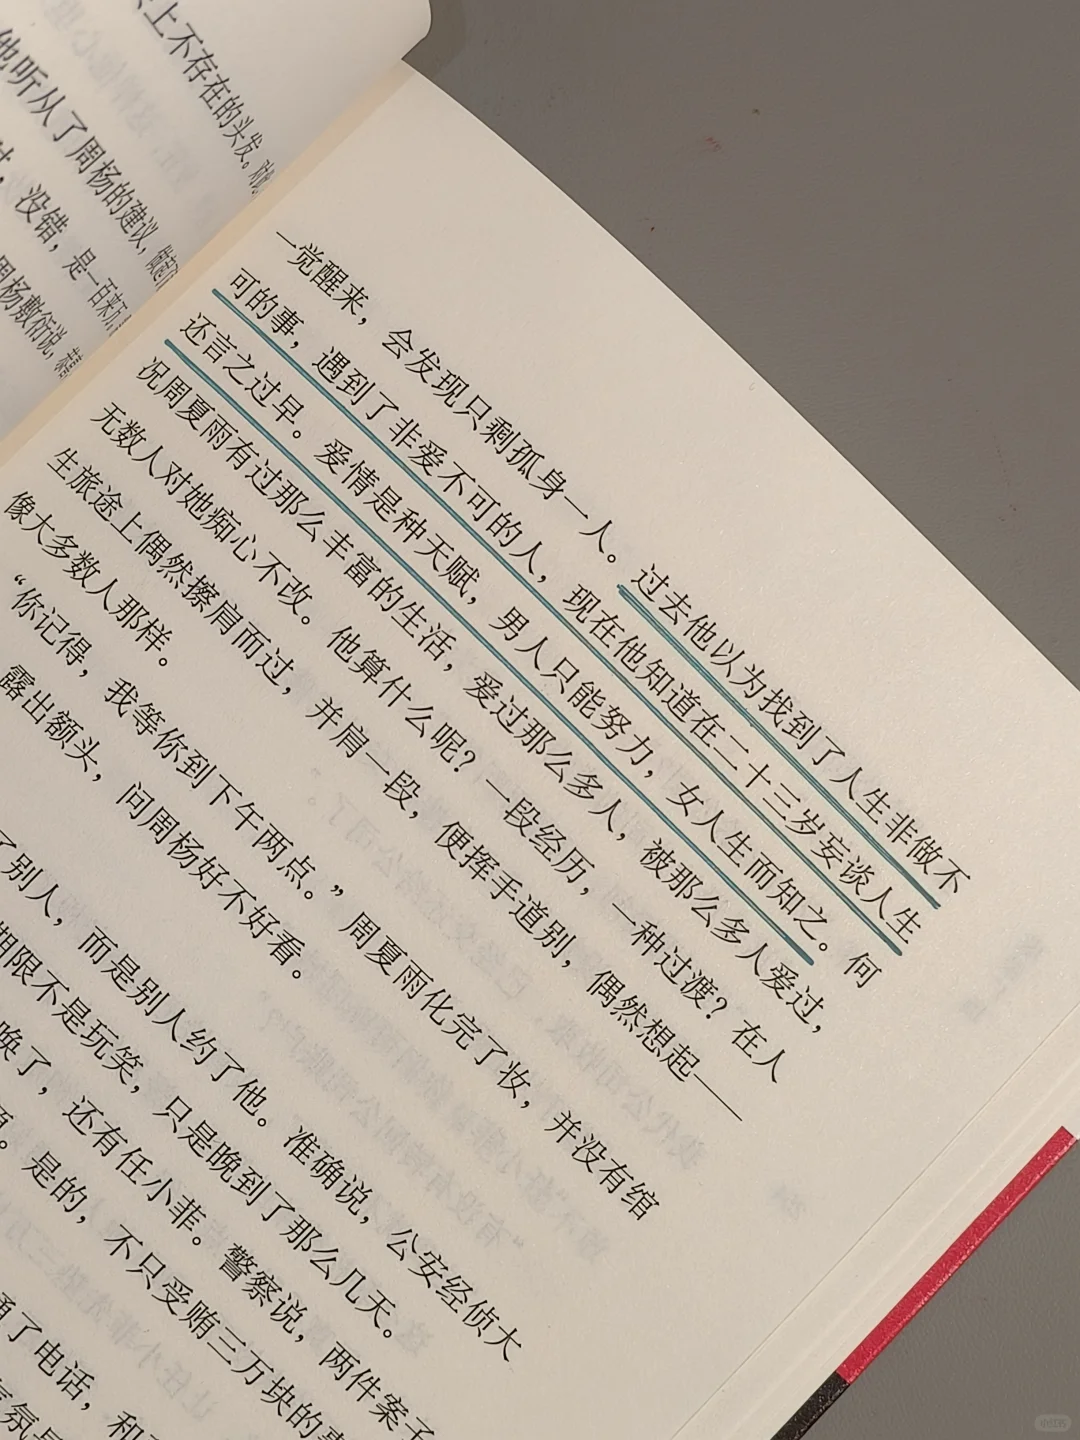 上不存在的头发。
他听从了周杨的建议，
没错，是一百来万，
周杨敷衍说，
一觉醒来，会发现只剩孤身一人。过去他以为找到了人生非做不
可的事，遇到了非爱不可的人，现在他知道在二十三岁妄谈人生
还言之过早。爱情是种天赋，男人只能努力，女人生而知之。何
况周夏雨有过那么丰富的生活，爱过那么多人，被那么多人爱过，
无数人对她痴心不改。他算什么呢？一段经历，一种过渡？在人
生旅途上偶然擦肩而过，并肩一段，便挥手道别，偶然想起——
像大多数人那样。
“你记得，我等你到下午两点。”周夏雨化完了妆，并没有绾
露出额头，问周杨好不好看。
了别人，而是别人约了他。准确说，公安经侦大
期限不是玩笑，只是晚到了那么几天。
唤了，还有任小菲。警察说，两件案子
是的，不只受贿三万块的事
通了电话，和
气氛是